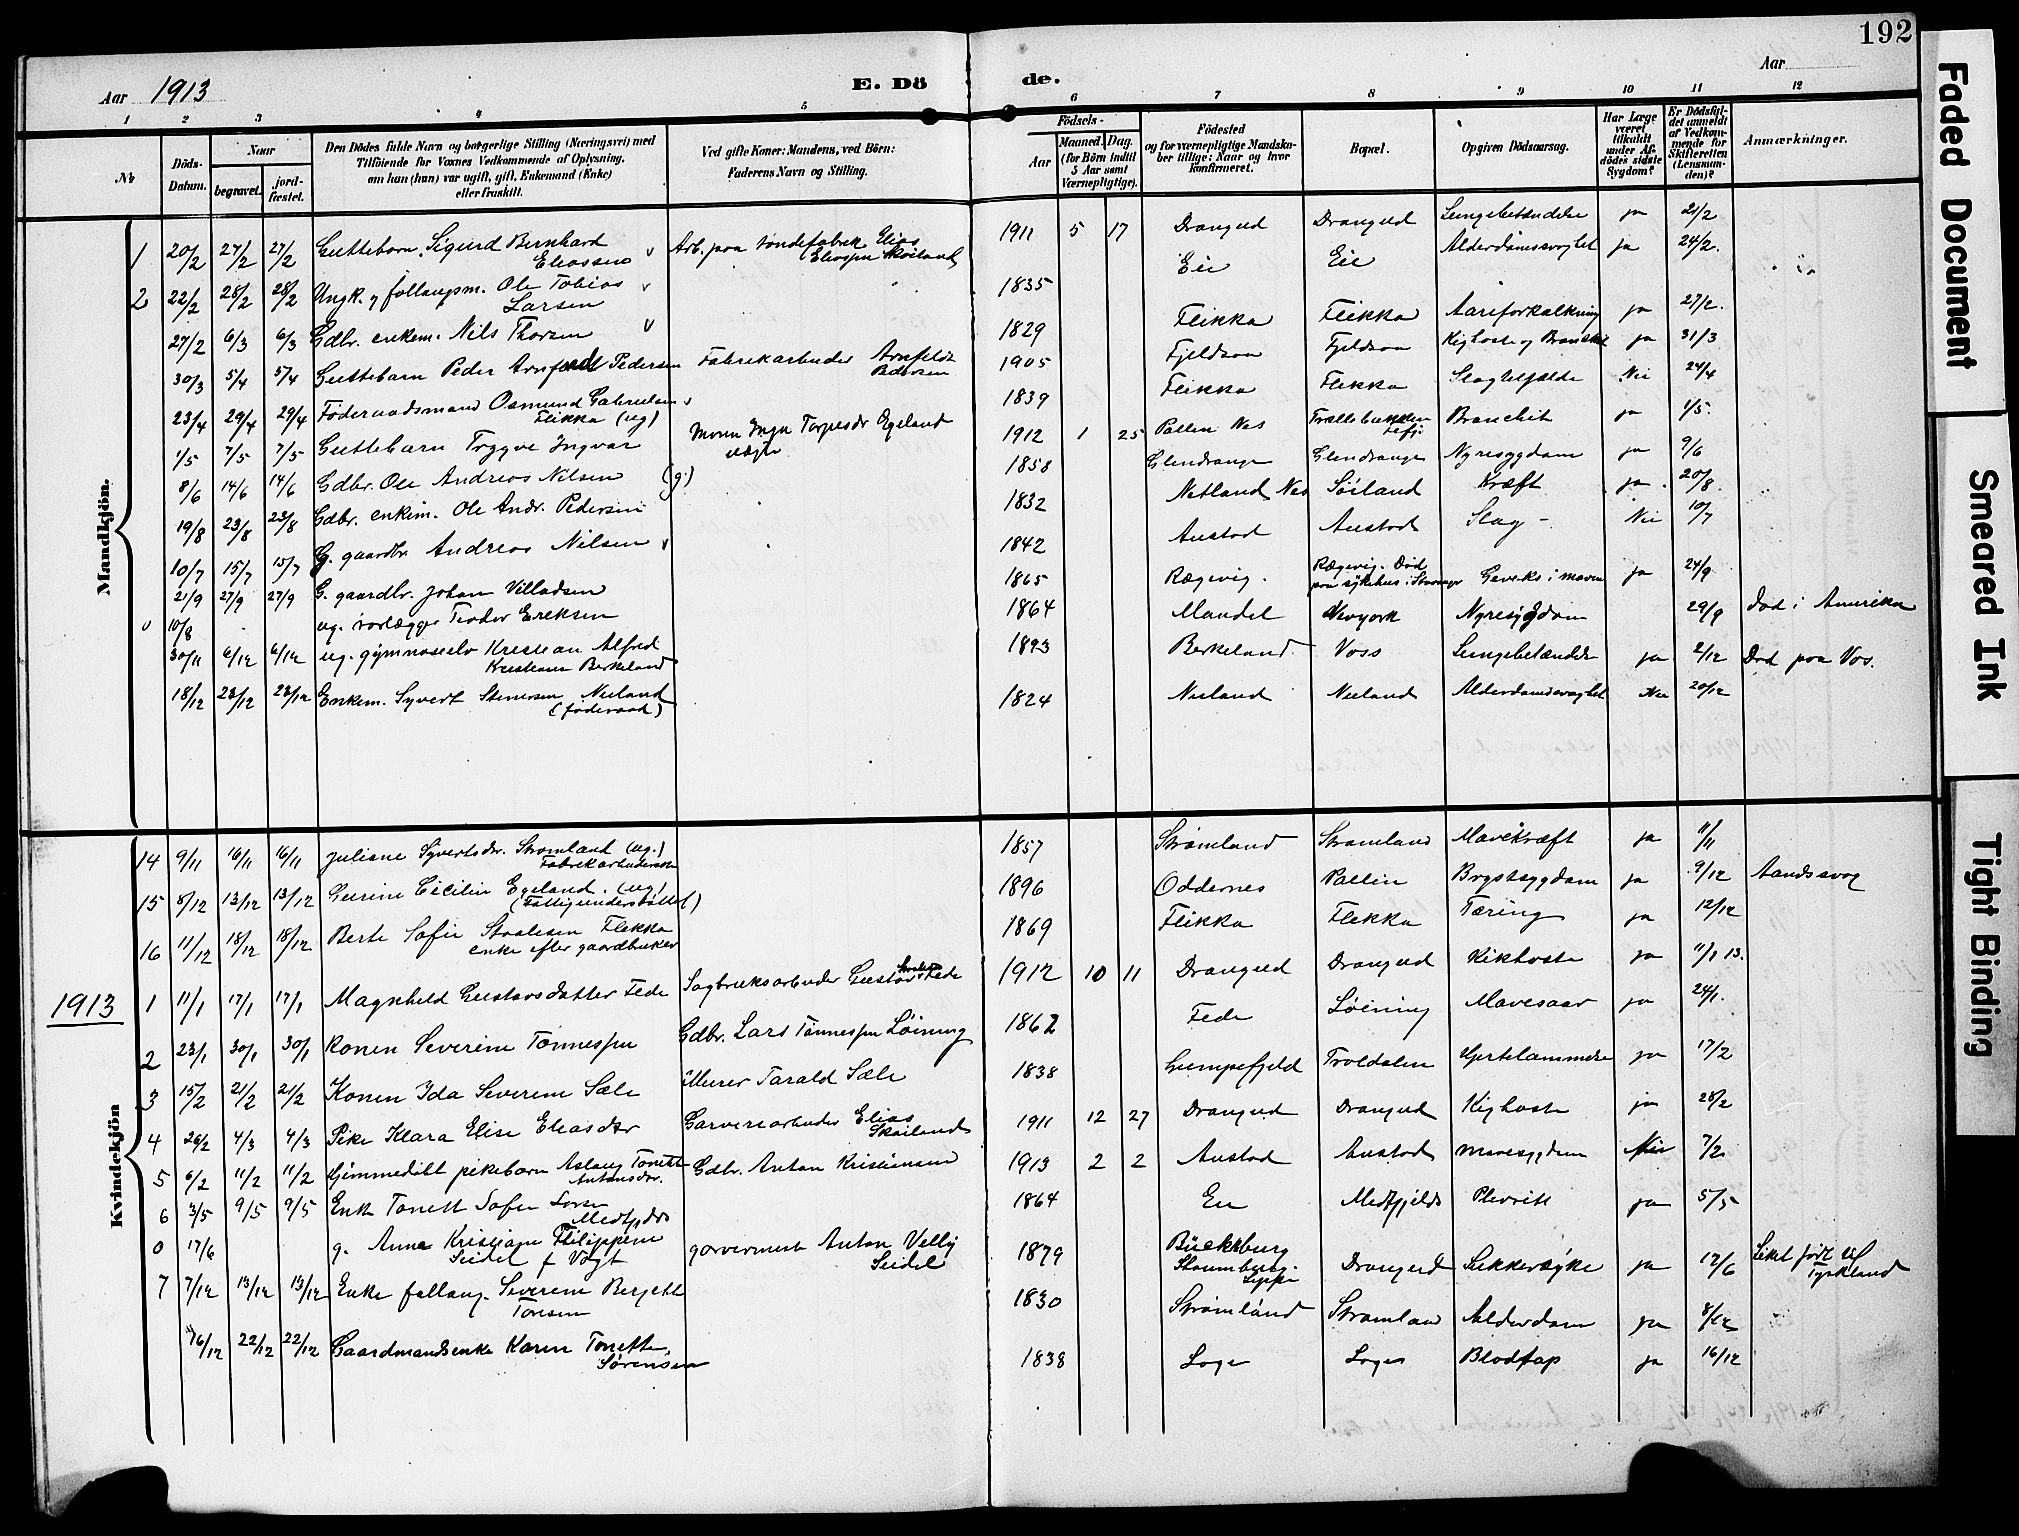 192
Aar 1913
E. Dö de.
Aar
1 2 3 4 5 6 7 8 9 10 11 12
No
Döds-Datum.
Naar
begravet.
jord-fæstet.
Den Dödes fulde Navn og borgerlige Stilling (Næringsvei) med
Tilföiende for Voxnes Vedkommende af Oplysning,
om han (hun) var ugift, gift, Enkemand (Enke)
eller fraskilt.
Ved gifte Koner: Mandens, ved Börn:
Faderens Navn og Stilling.
Födsels-
Aar
Maaned. Dag.
(for Börn indtil
5 Aar samt
Værnepligtige).
Födested
og for værnepligtige Mandska-
ber tillige: Naar og hvor
konfirmeret.
Bopæl.
Opgiven Dödsaarsag.
Har Læge
været
tilkaldt
under Af-
dödes sidste
Sygdom?
Er Dödsfal-
det anmeldt
af Vedkom-
mende for
Skifteretten
(Lensman-
den)?
Anmærkninger.
Mandkjön.
1 20/2 27/2 27/2 Guttebarn Sigurd Bernhard Eliassen Arb. paa tøndefabrek Elias Skoiland 1911 5 17 Drangeid Drangeid Lungebetændelse ja 21/2
2 22/2 28/2 28/2 Ungk. Ole Tobias Larsen 1835 Eie Eie Alderdomssvaghet ja 24/2
27/2 6/3 6/3 Gdbr. enkem. Nils Thorsen 1829 Fleikka Fleikka Aareforkalkning ja 27/2
30/3 5/4 5/4 Guttebarn Peder Pedersen Fabrekarbeider Arnfeldt Pedersen 1905 Fjeldsaa Fjeldsaa Kighoste og ja 31/3
23/4 29/4 29/4 Føderaadsmand Osmund Gabrielsen Fleikka (ug) 1839 Fleikka Flekka Nei 24/4
1/5 7/5 7/5 Guttebarn Trygve Ingvar Egeland 1912 1 25 Pollen Nes ja 1/5
8/6 14/6 14/6 Gdbr. Ole Andreas Nilsen (g) 1858 Glendrange Glendrange Nyresygdom ja 9/6
19/8 23/8 23/8 Gdbr. enkem. Ole Andr. Pedersen 1832 Netland Nes Soiland Kræft ja 20/8
10/7 15/7 15/7 G. gaardbr. Andreas Nilsen 1842 Austad Austad Slag - Nei 10/7
21/9 27/9 27/9 G. gaardbr. Johan Villadsen 1865 Rægevig. Rægevig. Død i maven ja 24/9
10/8 ug. rørlægger Teodor Ereksen 1864 Mandal Newyork Nyresygdom 29/9 Død i Amerika
30/11 6/12 6/12 ug. gymnaseelev Kristian Alfred Kristiansen Berkeland 1893 Berkeland. Voss Lungebetændelse ja 2/12 Død paa Vos.
18/12 23/12 23/12 Enkem. Syvert Stenersen Neeland (føderaad) 1824 Neeland Neeland Alderdomssvaghet Nei 20/12
Kvindekjön
14 9/11 16/11 16/11 Juliane Syvertsdr. Strømland (ug.) Fabrekarbeiderske 1857 Strømland Strømland Mavekræft ja 11/11
15 8/12 13/12 13/12 Gurine Cecilie Egeland. (ug) (Fattigunderstøttet) 1896 Oddernes Pollen Brystsygdom ja 9/12 Aandssvag
16 11/12 18/12 18/12 Berte Sofie Staalesen Flekka enke efter gaardbruker 1869 Fleikka Flekka Tæring ja 12/12
1913
1 11/1 17/1 17/1 Magnhild Gustavsdatter Fede Sagbruksarbeider Gustav Fede 1912 10 11 Drangeid Drangeid Kikhoste ja 11/1 13.
2 23/1 30/1 30/1 Konen Severine Tønnesen Gdbr. Lars Tønnesen Løining 1862 Fede Løining Mavesaar ja 24/1.
3 15/2 21/2 21/2 Konen Ida Severine Sæle Murer Tarald Sæle 1838 Gumpefjeld Troldalen Hjertelammelse ja 17/2
4 26/2 4/3 4/3 Pike Klara Elise Eliasdtr Garveriarbeider Elias Skoiland 1911 12 27 Drangeid Drangeid Kighoste ja 28/2
5 6/2 11/2 11/2 Hjemmedøbt pikebarn Aslaug Tonette Antonsdr. Gdbr. Anton Kristiansen 1913 2 2 Austad Austad mavesygdom Nei 7/2
6 3/5 9/5 9/5 Enke Tonette Sofie 1864 Eie Medfjelds Plevrit ja 5/5
0 17/6 g. Anna Kristiane Filippine Seidel f Vogt garvermest Anton Velly Seidel 1879 Bückeburg Lippe Drangeid Sukkersyke ja 12/6 Leket ført til Tyskland
7 7/12 13/12 13/12 Enke Severine Berjette Tonesen 1830 Strømland Strømland Alderdom ja 8/12
16/12 22/12 22/12 Gaardmandsenke Karen Tonette Sørensen 1838 Loge Loge Blodtap ja 16/12
Faded Document
Smeared Ink
Tight Binding